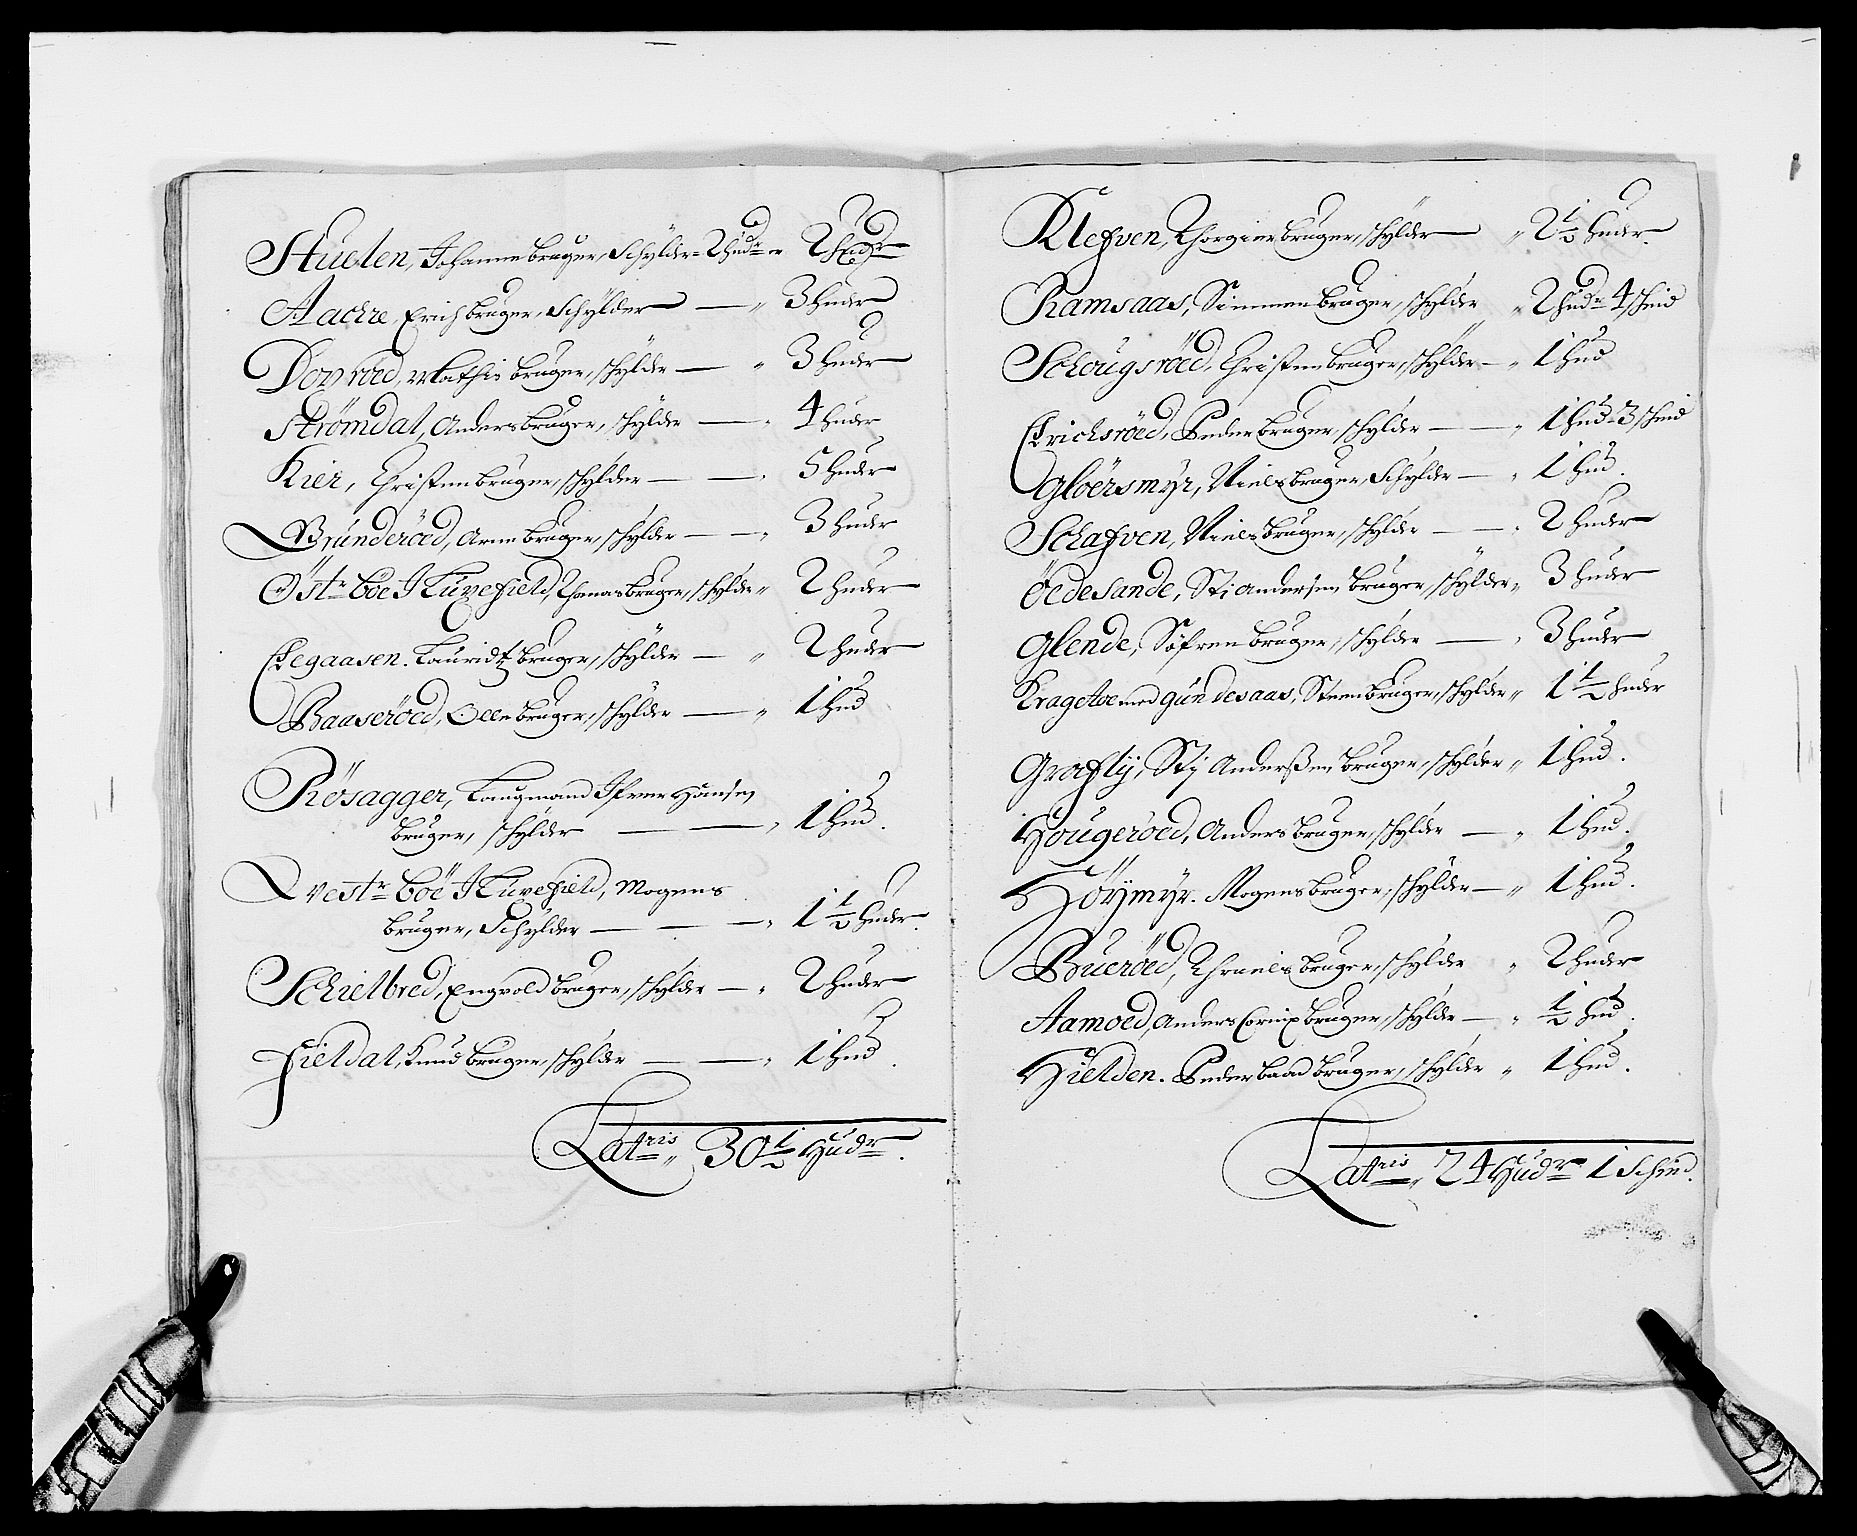 Stuelen, Johanne bruger, Schylder 2 hudr 2 hudr
Aachre Erich bruger, Schylder — „ 3 hudr
Donröed, Mathis bruger, schylder — „ 3 hudr
Strömdal, Anders bruger, schylder — „ 4 hudr
Kier, Christen bruger, schylder — „ 5 hudr
Bründeröed, Arne bruger, schylder — „ 3 hudr
Östr böe J Kurefield, Thomas bruger, schylder „ 2 hudr
Egaasen. Lauridtz bruger, schylder — „ 2 hudr
Baaseröed, Olle bruger, schylder — „ 1 hud
Rösagger, Laugmand Ifver Hansen
bruger, schylder — „ 1 hud.
Vestr böe J Kurefield, Mogens
bruger, Schylder — „ 1 1/2 hudr.
Schielbred, Engvold bruger, schylder — „ 2 hudr
Fieldal, Knud bruger, schylder — „ 1 hud.
Latris „ 30 1/2 Hudr.
Klefven, Thorgier bruger, schylder — „ 2 1/2 hudr.
Ramsaas, Simmen bruger, schylder „ 2 hudr 4 schind
Schougsröed, Christen bruger, schylder — „ 1 hud
Erichsröed, Peder bruger, schylder — „ 1 hud 3 schind
Glöersmyr, Niels bruger, Schylder — „ 1 hud.
Schafven, Niels bruger, schylder — „ 2 hudr
Ödesande, Sti Andersen bruger, schylder „ 3 hudr
Glende, Söfren bruger, schylder — „ 3 hudr
Kragetoe med gundesaas, Steen bruger, schylder „ 1 1/2 hudr
Grafly, Stj Anderßen bruger, schylder „ 1 hud.
Hougeröed, Anders bruger, schylder — „ 1 hud.
Höymyr. Mogens bruger, schylder — „ 1 hud.
Bueröed, Thruels bruger, schylder „ 2 hudr
Aamoed, Anders Cornix bruger, schylder — „ 1/2 hud.
Hielden. Peder baad bruger, schylder „ 1 hud.
Latris „ 24 Hudr 1 Schind.